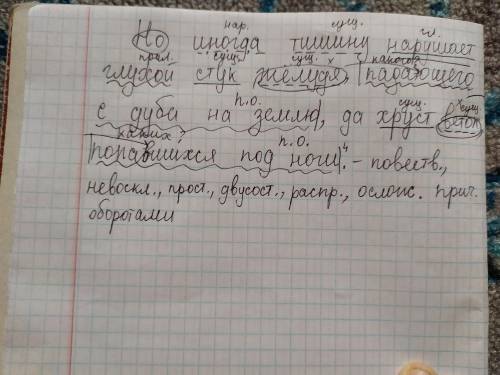 нар. сущ. гл.
Но иногда тишину нарушает
прил. сущ. сущ. х какого?
глухой стук желудя, падающего
п.о. сущ. х сущ.
с дуба на землю, да хруст веток
каких? п.о.
попавшихся под ноги.⁴ - повеств.,
невоскл., прост., двусост., распр., ослож. прич.
оборотами